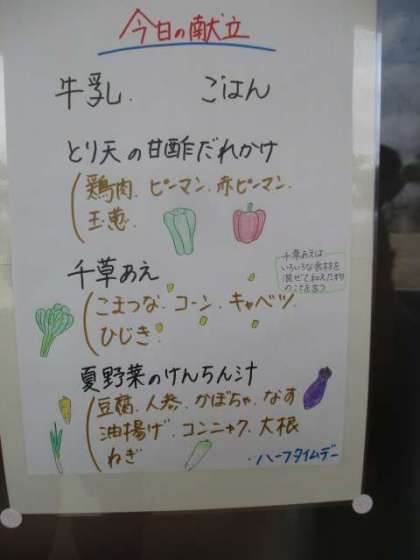 今日の献立
牛乳. ごはん
とり天の甘酢だれかけ
(鶏肉. ピーマン. 赤ピーマン.
玉葱.
千草あえ
(こまつな. コーン. キャベツ
ひじき.
千草あえは
いろいろな食材を
混ぜて和えた物
のことを言う
夏野菜のけんちん汁
(豆腐. 人参. かぼちゃ. なす
油揚げ. コンニャク. 大根
ねぎ
・ハーフタイムデー